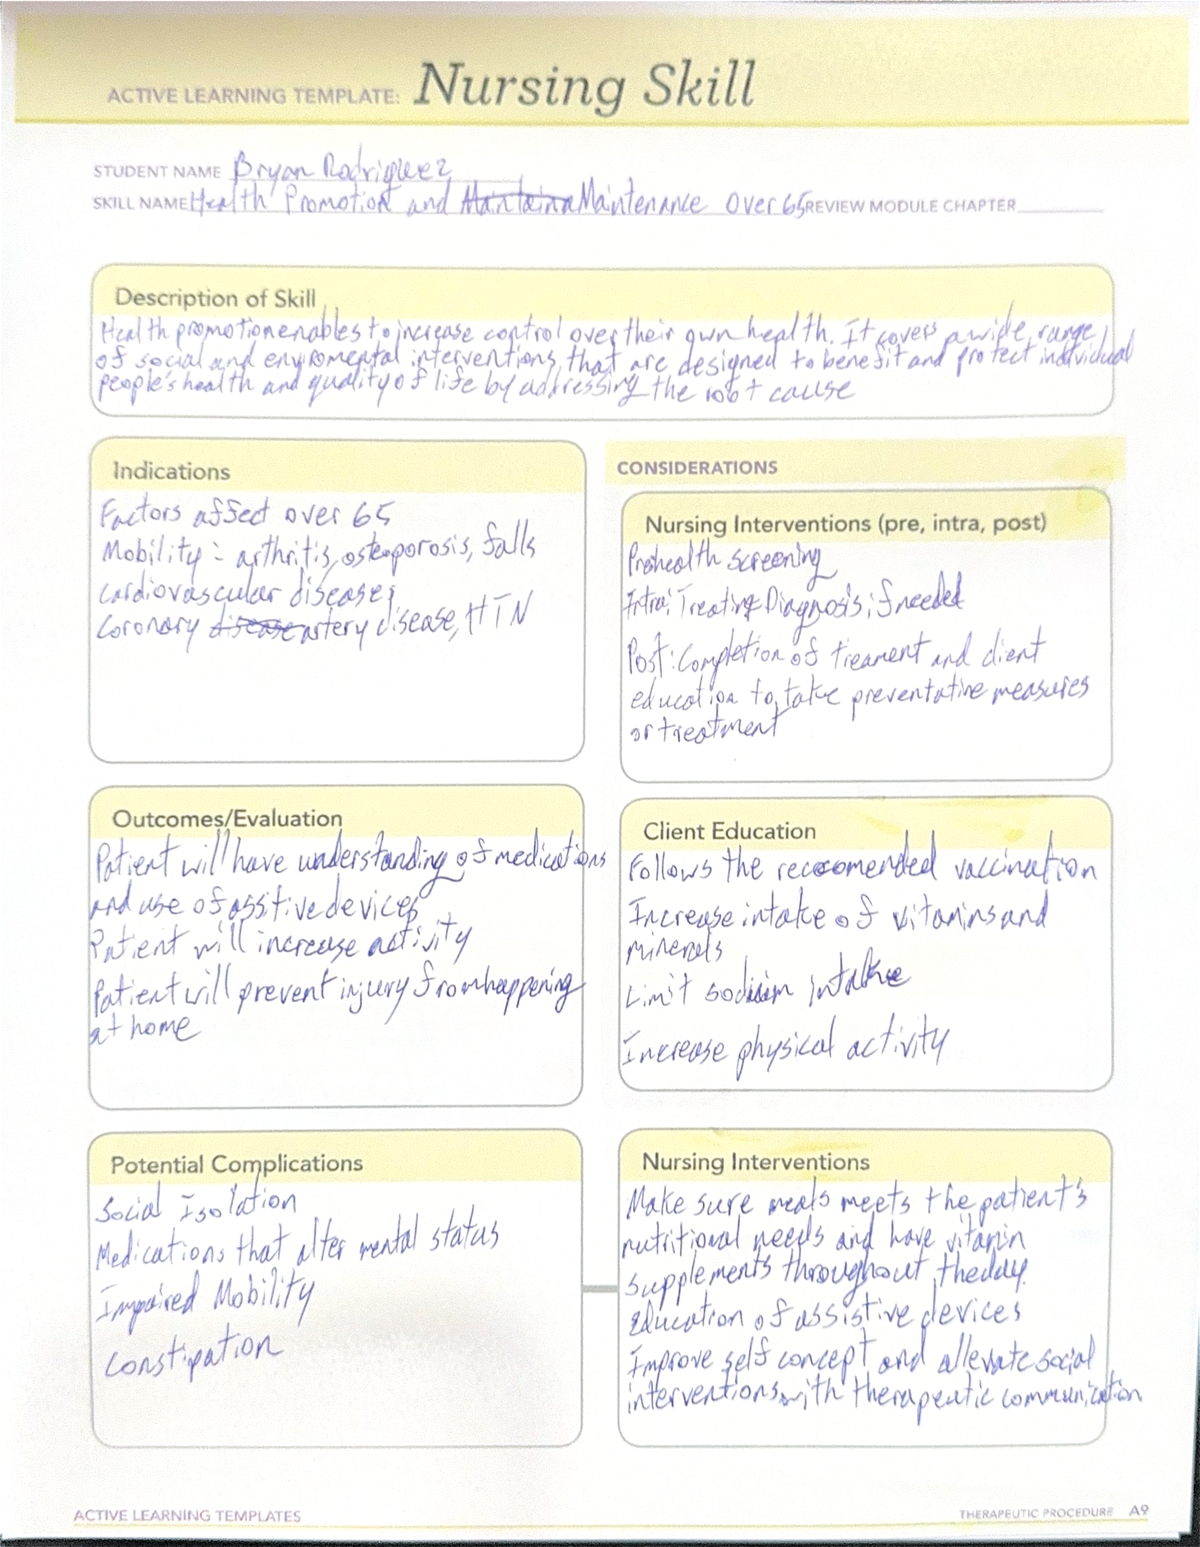 ACTIVE LEARNING TEMPLATE: Nursing Skill
STUDENT NAME Bryan Rodriguez
SKILL NAME Health Promotion and Maintaina Maintenance Over 65 REVIEW MODULE CHAPTER
Description of Skill
Health promotion enables to increase control over their own health. It covers a wide range
of social and enviromental interventions that are designed to benefit and protect individual
people's health and quality of life by addressing the root cause
Indications
Factors affect over 65
Mobility: arthritis, osteoporosis, falls
Cardiovascular diseases
Coronary disease artery disease, HTN
CONSIDERATIONS
Nursing Interventions (pre, intra, post)
Prehealth screening
Intra: Treating Diagnosis if needed
Post: Completion of treament and client
education to take preventative measures
or treatment
Outcomes/Evaluation
Patient will have understanding of medications
and use of assitive devices
Patient will increase activity
Patient will prevent injury from happening
at home
Client Education
Follows the recoomended vaccination
Increase intake of vitamins and
minerals
Limit sodium intake
Increase physical activity
Potential Complications
Social Isolation
Medications that alter mental status
Impaired Mobility
Constipation
Nursing Interventions
Make sure meals meets the patient's
nutritional needs and have vitamin
supplements throughout the day.
Education of assistive devices
Improve self concept and allevate social
interventions with therapeutic communication
ACTIVE LEARNING TEMPLATES
THERAPEUTIC PROCEDURE A9